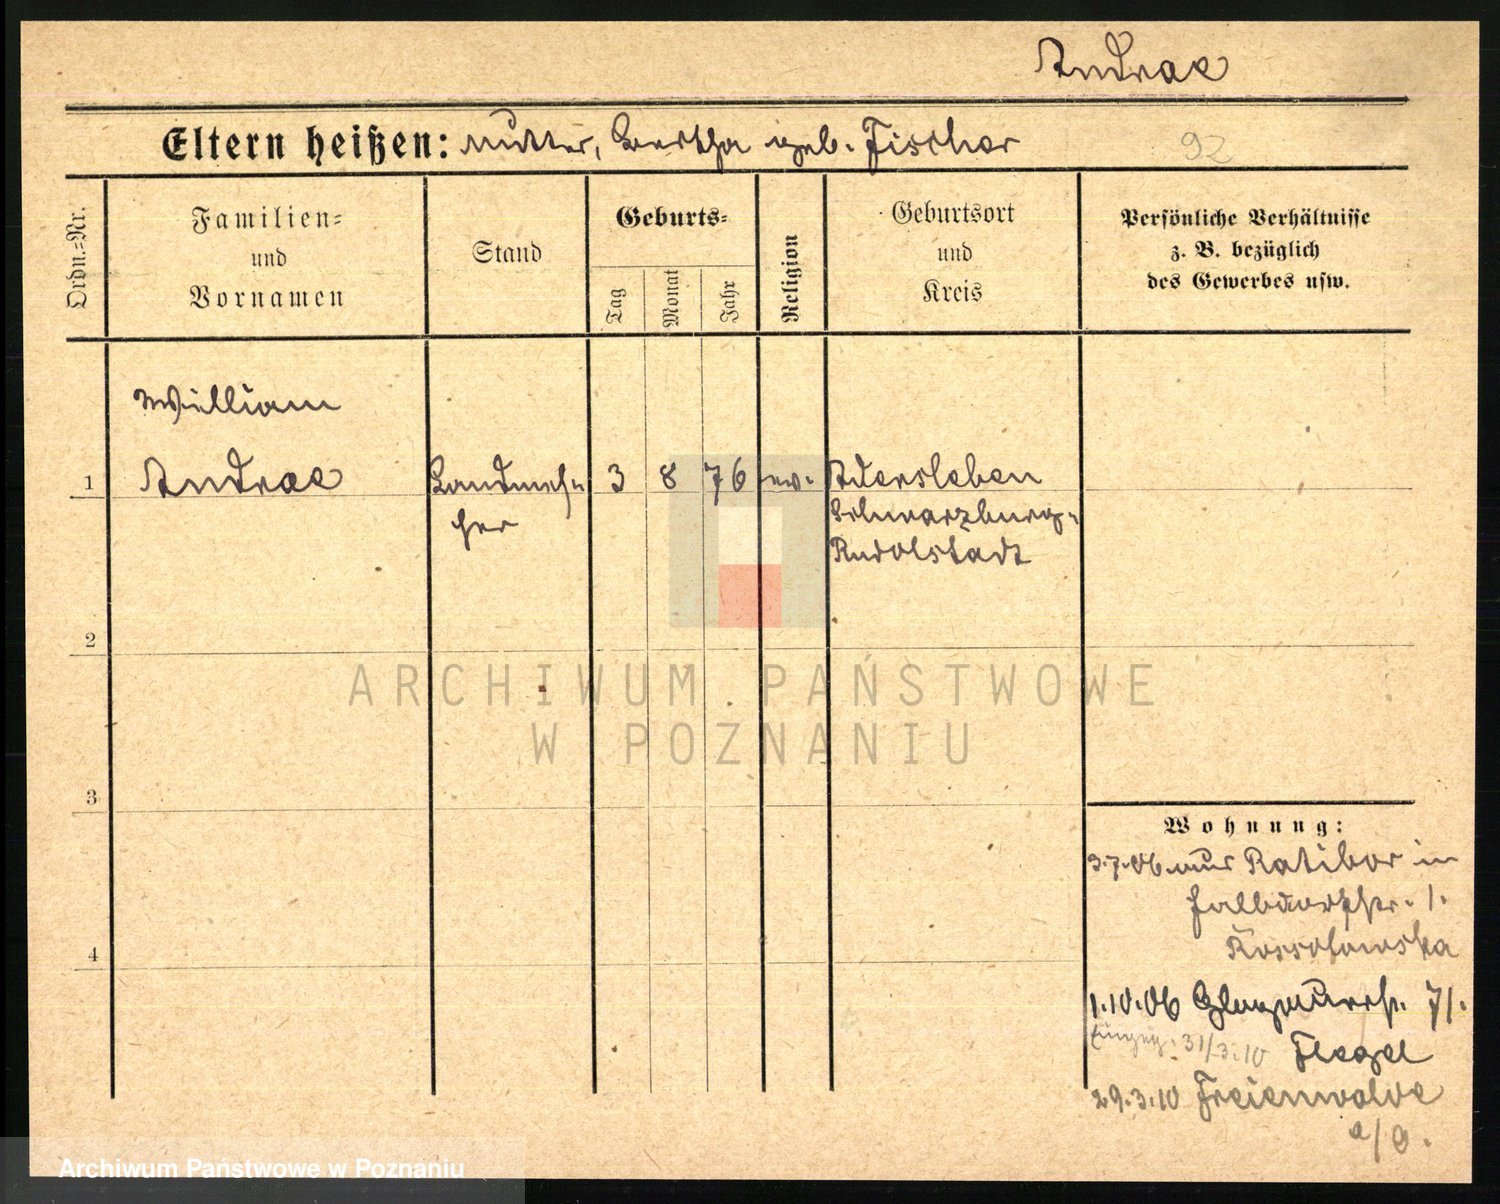 Andrae
Eltern heißen: Mutter, Bertha geb. Fischer
92
Ordn.=Nr.
Familien=
und
Vornamen
Stand
Geburts=
Tag
Monat
Jahr
Religion
Geburtsort
und
Kreis
Persönliche Verhältnisse
z. B. bezüglich
des Gewerbes usw.
William
1 Andrae Landmes= 3 8 76 ev. Adersleben
ser Schwarzburg=
Rudolstadt
2
3
4
Wohnung:
3.7.06 aus Ratibor in
1.
1.10.06 Glogauerstr. 71.
31/3.10 Flegel
29.3.10 Freienwalde
a/O.
ARCHIWUM PAŃSTWOWE
W POZNANIU
Archiwum Państwowe w Poznaniu